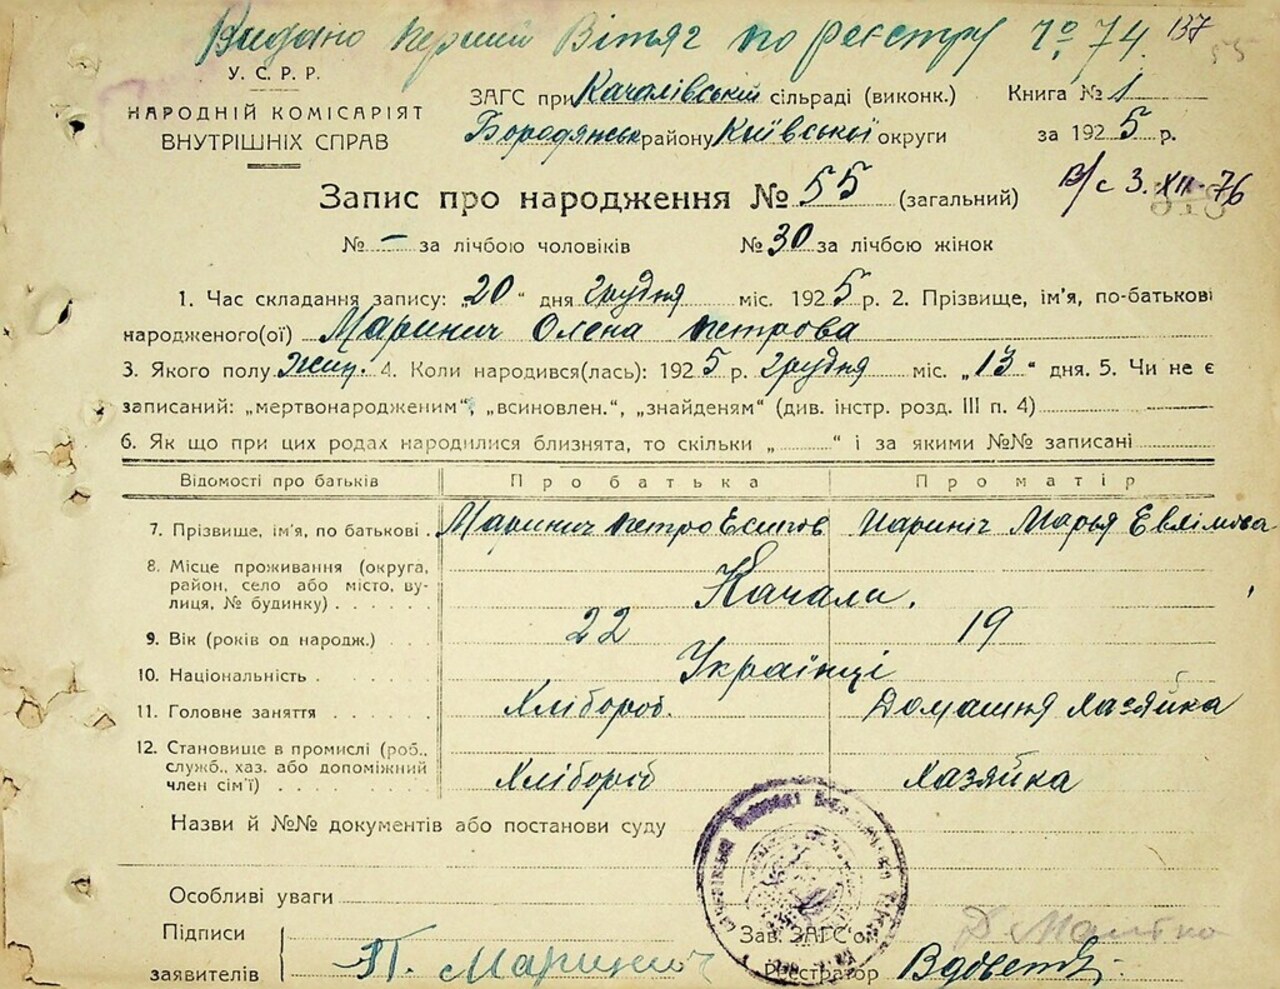 Видано перший Вітяг по реєстру № 74. 137
55
У. С. Р. Р.
НАРОДНІЙ КОМІСАРІЯТ
ВНУТРІШНІХ СПРАВ
ЗАГС при Качалівській сільраді (виконк.)
Бородянськ району Київської округи
Книга № 1
за 1925 р.
Запис про народження № 55 (загальний)
в/с 3. XII-76
№ — за лічбою чоловіків № 30 за лічбою жінок
1. Час складання запису: „20“ дня Грудня міс. 1925 р. 2. Прізвище, ім'я, по-батькові
народженого(ої) Маринич Олена Петрова
3. Якого полу Жін. 4. Коли народився(лась): 1925 р. Грудня міс. „13“ дня. 5. Чи не є
записаний: „мертвонародженим“, „всиновлен.“, „знайденям“ (див. інстр. розд. III п. 4)
6. Як що при цих родах народилися близнята, то скільки „ “ і за якими №№ записані
Відомості про батьків Про батька Про матір
7. Прізвище, ім'я, по батькові . Маринич Петро Есипов Маринич Марья Евлімова
8. Місце проживання (округа,
район, село або місто, ву-
лиця, № будинку) . . . . . . Качали.
9. Вік (років од народж.) . . . 22 19
10. Національність . . . . . . Українці
11. Головне заняття . . . . . Хлібороб. Домашня хазяйка
12. Становище в промислі (роб.,
служб., хаз. або допоміжний
член сім'ї) . . . . . . . . Хлібороб Хазяйка
Назви й №№ документів або постанови суду
Особливі уваги
Підписи
заявителів П. Маринич
Зав. ЗАГС'ом
Реєстратор